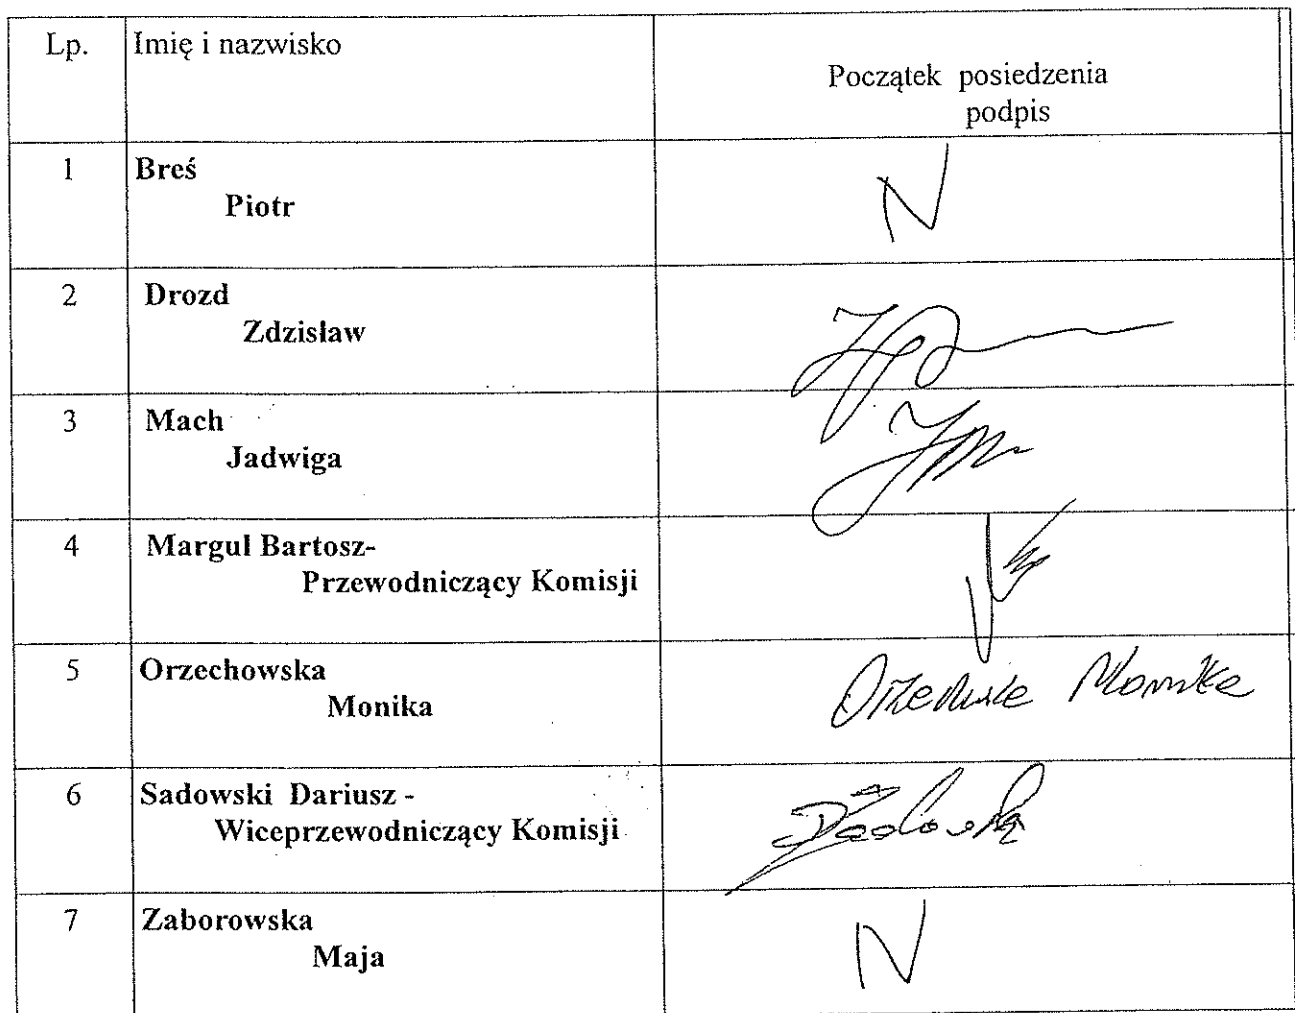 Lp. Imię i nazwisko
Początek posiedzenia
podpis
1 Breś
Piotr
N
2 Drozd
Zdzisław
3 Mach
Jadwiga
4 Margul Bartosz-
Przewodniczący Komisji
5 Orzechowska
Monika
Monika
6 Sadowski Dariusz -
Wiceprzewodniczący Komisji
7 Zaborowska
Maja
N